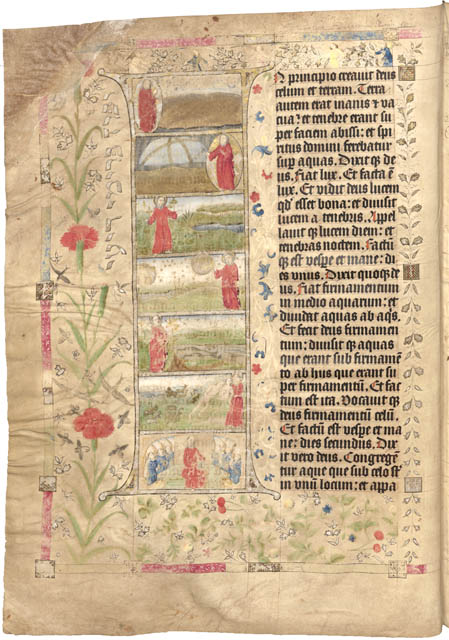 N principio creauit deus
celum et terram. Terra
autem erat inanis ⁊ va
cua: et tenebre erant su
per faciem abissi: et spi
ritus domini ferebatur
sup̄ aquas. Dixit q; de
us. Fiat lux. Et facta ē
lux. Et vidit deus lucem
q̄d esset bona: et diuisit
lucem a tenebris. Appel
lauit q; lucem diem: et
tenebras noctem. Factū
q; est vesp̄e et mane: di
es vnus. Dixit quoq; de
us. Fiat firmamentum
in medio aquarum: et
diuidat aquas ab aq̄s.
Et fecit deus firmamen
tum: diuisit q; aquas
que erant sub firmamē
to ab hus que erant su
per firmamentū. Et fac
tum est ita. Vocauit q;
deus firmamentū celū.
Et factū est vesp̄e et ma
ne: dies secundus. Dix
it vero deus. Congregē
tur aque que sub celo s̄t
in vnū locum: et appa